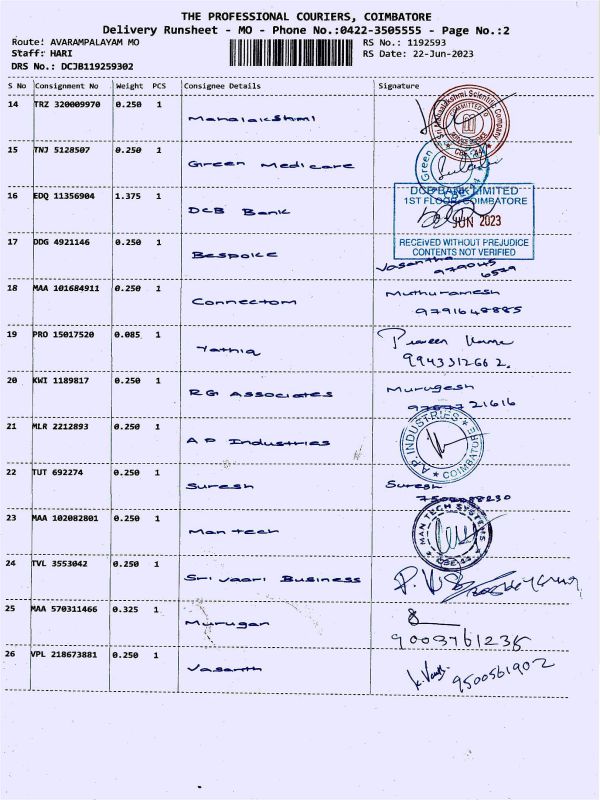 THE PROFESSIONAL COURIERS, COIMBATORE
Delivery Runsheet - MO - Phone No.:0422-3505555 - Page No.:2
Route: AVARAMPALAYAM MO
Staff: HARI
DRS No.: DCJB119259302
RS No.: 1192593
RS Date: 22-Jun-2023
S No Consignment No Weight PCS Consignee Details Signature
14 TRZ 320009970 0.250 1 Mahalakshmi
15 TNJ 5128507 0.250 1 Green Medicare
16 EDQ 11356904 1.375 1 DCB Bank
DCB BANK LIMITED
1ST FLOOR, COIMBATORE
JUN 2023
RECEIVED WITHOUT PREJUDICE
CONTENTS NOT VERIFIED
17 DDG 4921146 0.250 1 Bespoke Vasantha
18 MAA 101684911 0.250 1 Connectom Muthuramesh
9791648885
19 PRO 15017520 0.085 1 Yathiq Praveen Kumar
9943312662.
20 KWI 1189817 0.250 1 RG Associates Murugesh
21 MLR 2212893 0.250 1 A P Industries
A.P. INDUSTRIES
COIMBATORE
22 TUT 692274 0.250 1 Suresh Suresh
23 MAA 102082801 0.250 1 Man tech
MAN TECH SYSTEMS
24 TVL 3553042 0.250 1 Sri vaari Business
25 MAA 570311466 0.325 1 Murugan
9003761235
26 VPL 218673881 0.250 1 Vasanth
9500561902